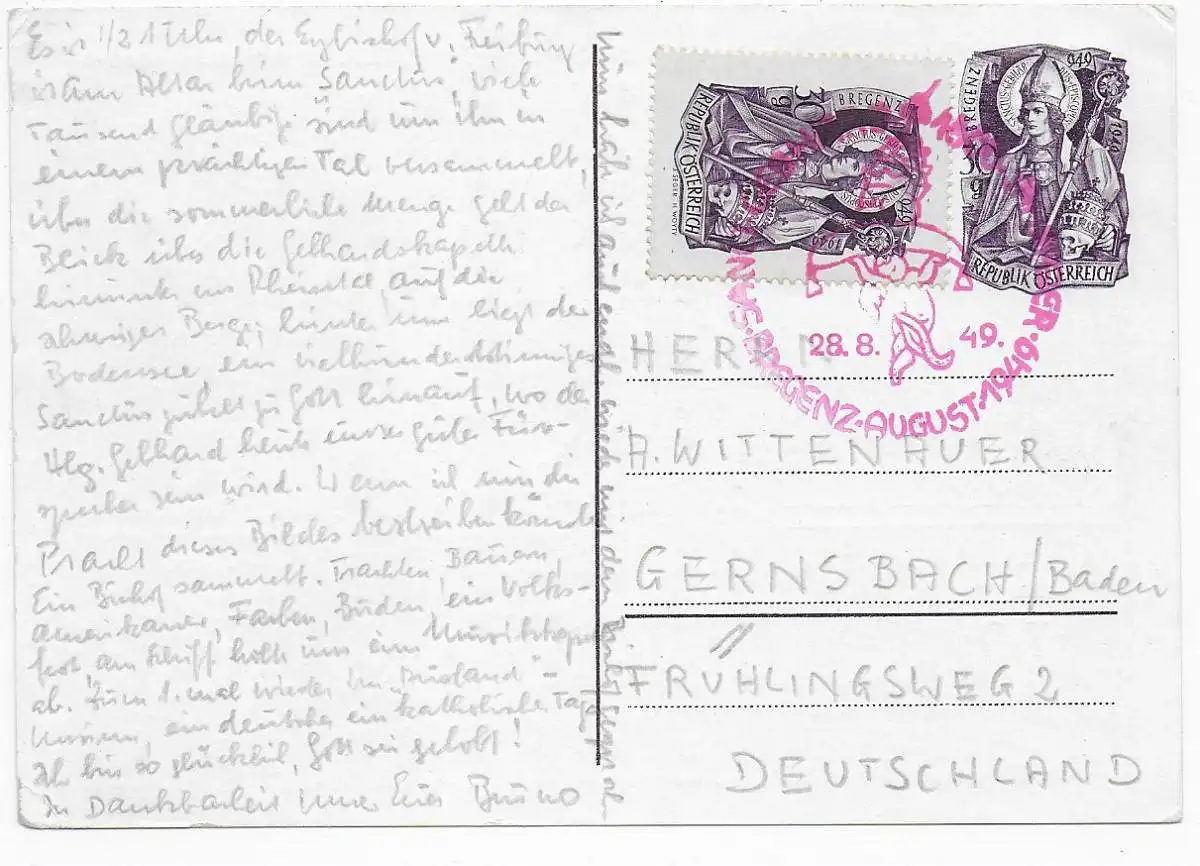 Es ist 1/2 1 Uhr, der Erzbischof v. Freiburg
ist am Altar beim Sanctus, viele
Tausend Gläubige sind um ihn in
einem prächtigen Tal versammelt,
über die sommerliche Menge geht der
Blick über die Gebhardskapelle
hinunter ins Rheintal, auf die
Berge, hinter uns liegt der
Bodensee, ein vielhundertstimmiges
Sanctus zu Gott hinauf, wo der
Hlg. Gebhard heute unser guter Für-
sprecher sein wird. Wenn ich nur die
Pracht dieses Bildes beschreiben könnte
Ein Bischof sammelt. Trachten, Bauern,
Amerikaner, Farben, Buden, ein Volks-
fest, am Schiff holte uns eine Musikkapelle
ab. Zum 1. mal wieder im "Ausland" -
ein deutscher ein katholischer Tag,
Ich bin so glücklich, Gott sei gelobt!
In Dankbarkeit immer Euer Bruno
nun habe ich auf einmal mit dem
BREGENZ
949
1949
SANCTUS GEBHARDUS EPISCOPUS
30
g
REPUBLIK ÖSTERREICH
J. SEGER H. WOYTY
BREGENZ
949
1949
30
g
REPUBLIK ÖSTERREICH
28.8. 49.
BREGENZ·AUGUST·1949·
HERRN
A. WITTENAUER
GERNSBACH/Baden
FRÜHLINGSWEG 2
DEUTSCHLAND